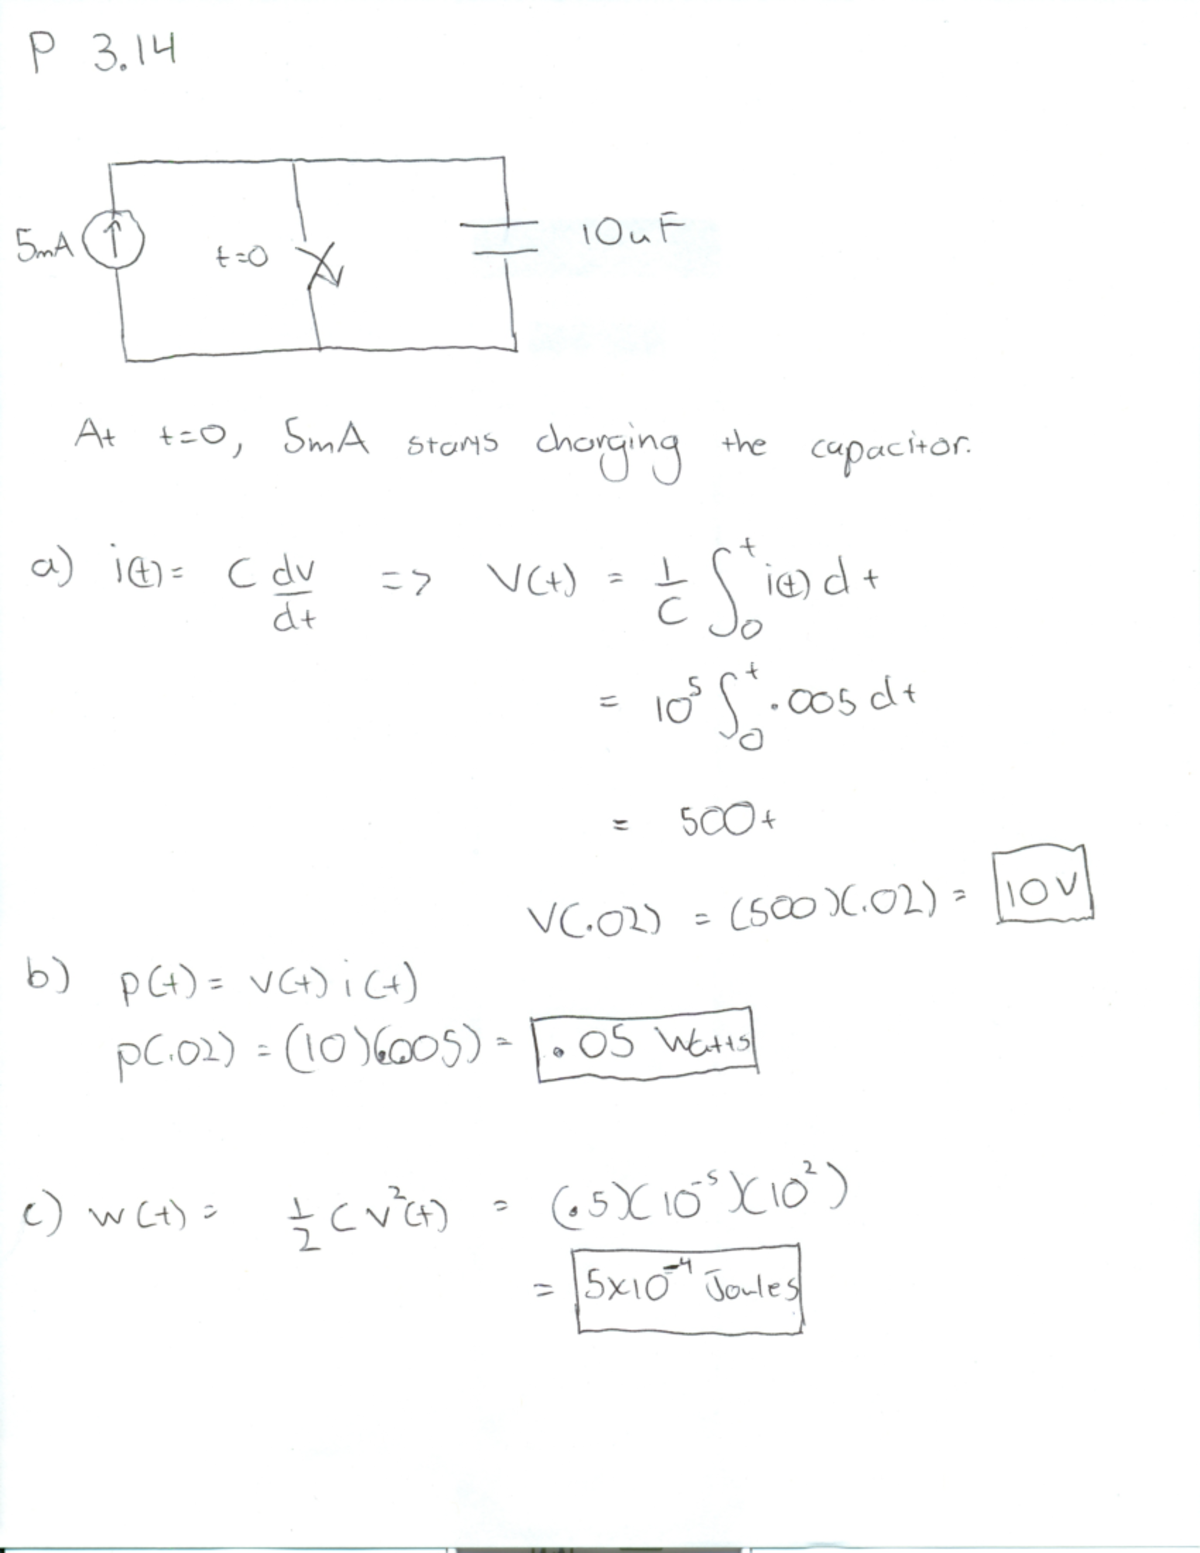 P 3.14
5mA
t=0
10uF
At t=0, 5mA starts charging the capacitor.
a) i(t) = C dv/dt => V(t) = 1/C ∫₀ᵗ i(t) dt
= 10⁵ ∫₀ᵗ .005 dt
= 500t
V(.02) = (500)(.02) = 10V
b) p(t) = v(t) i(t)
p(.02) = (10)(.005) = .05 Watts
c) w(t) = 1/2 C v²(t) = (.5)(10⁻⁵)(10²)
= 5x10⁻⁴ Joules